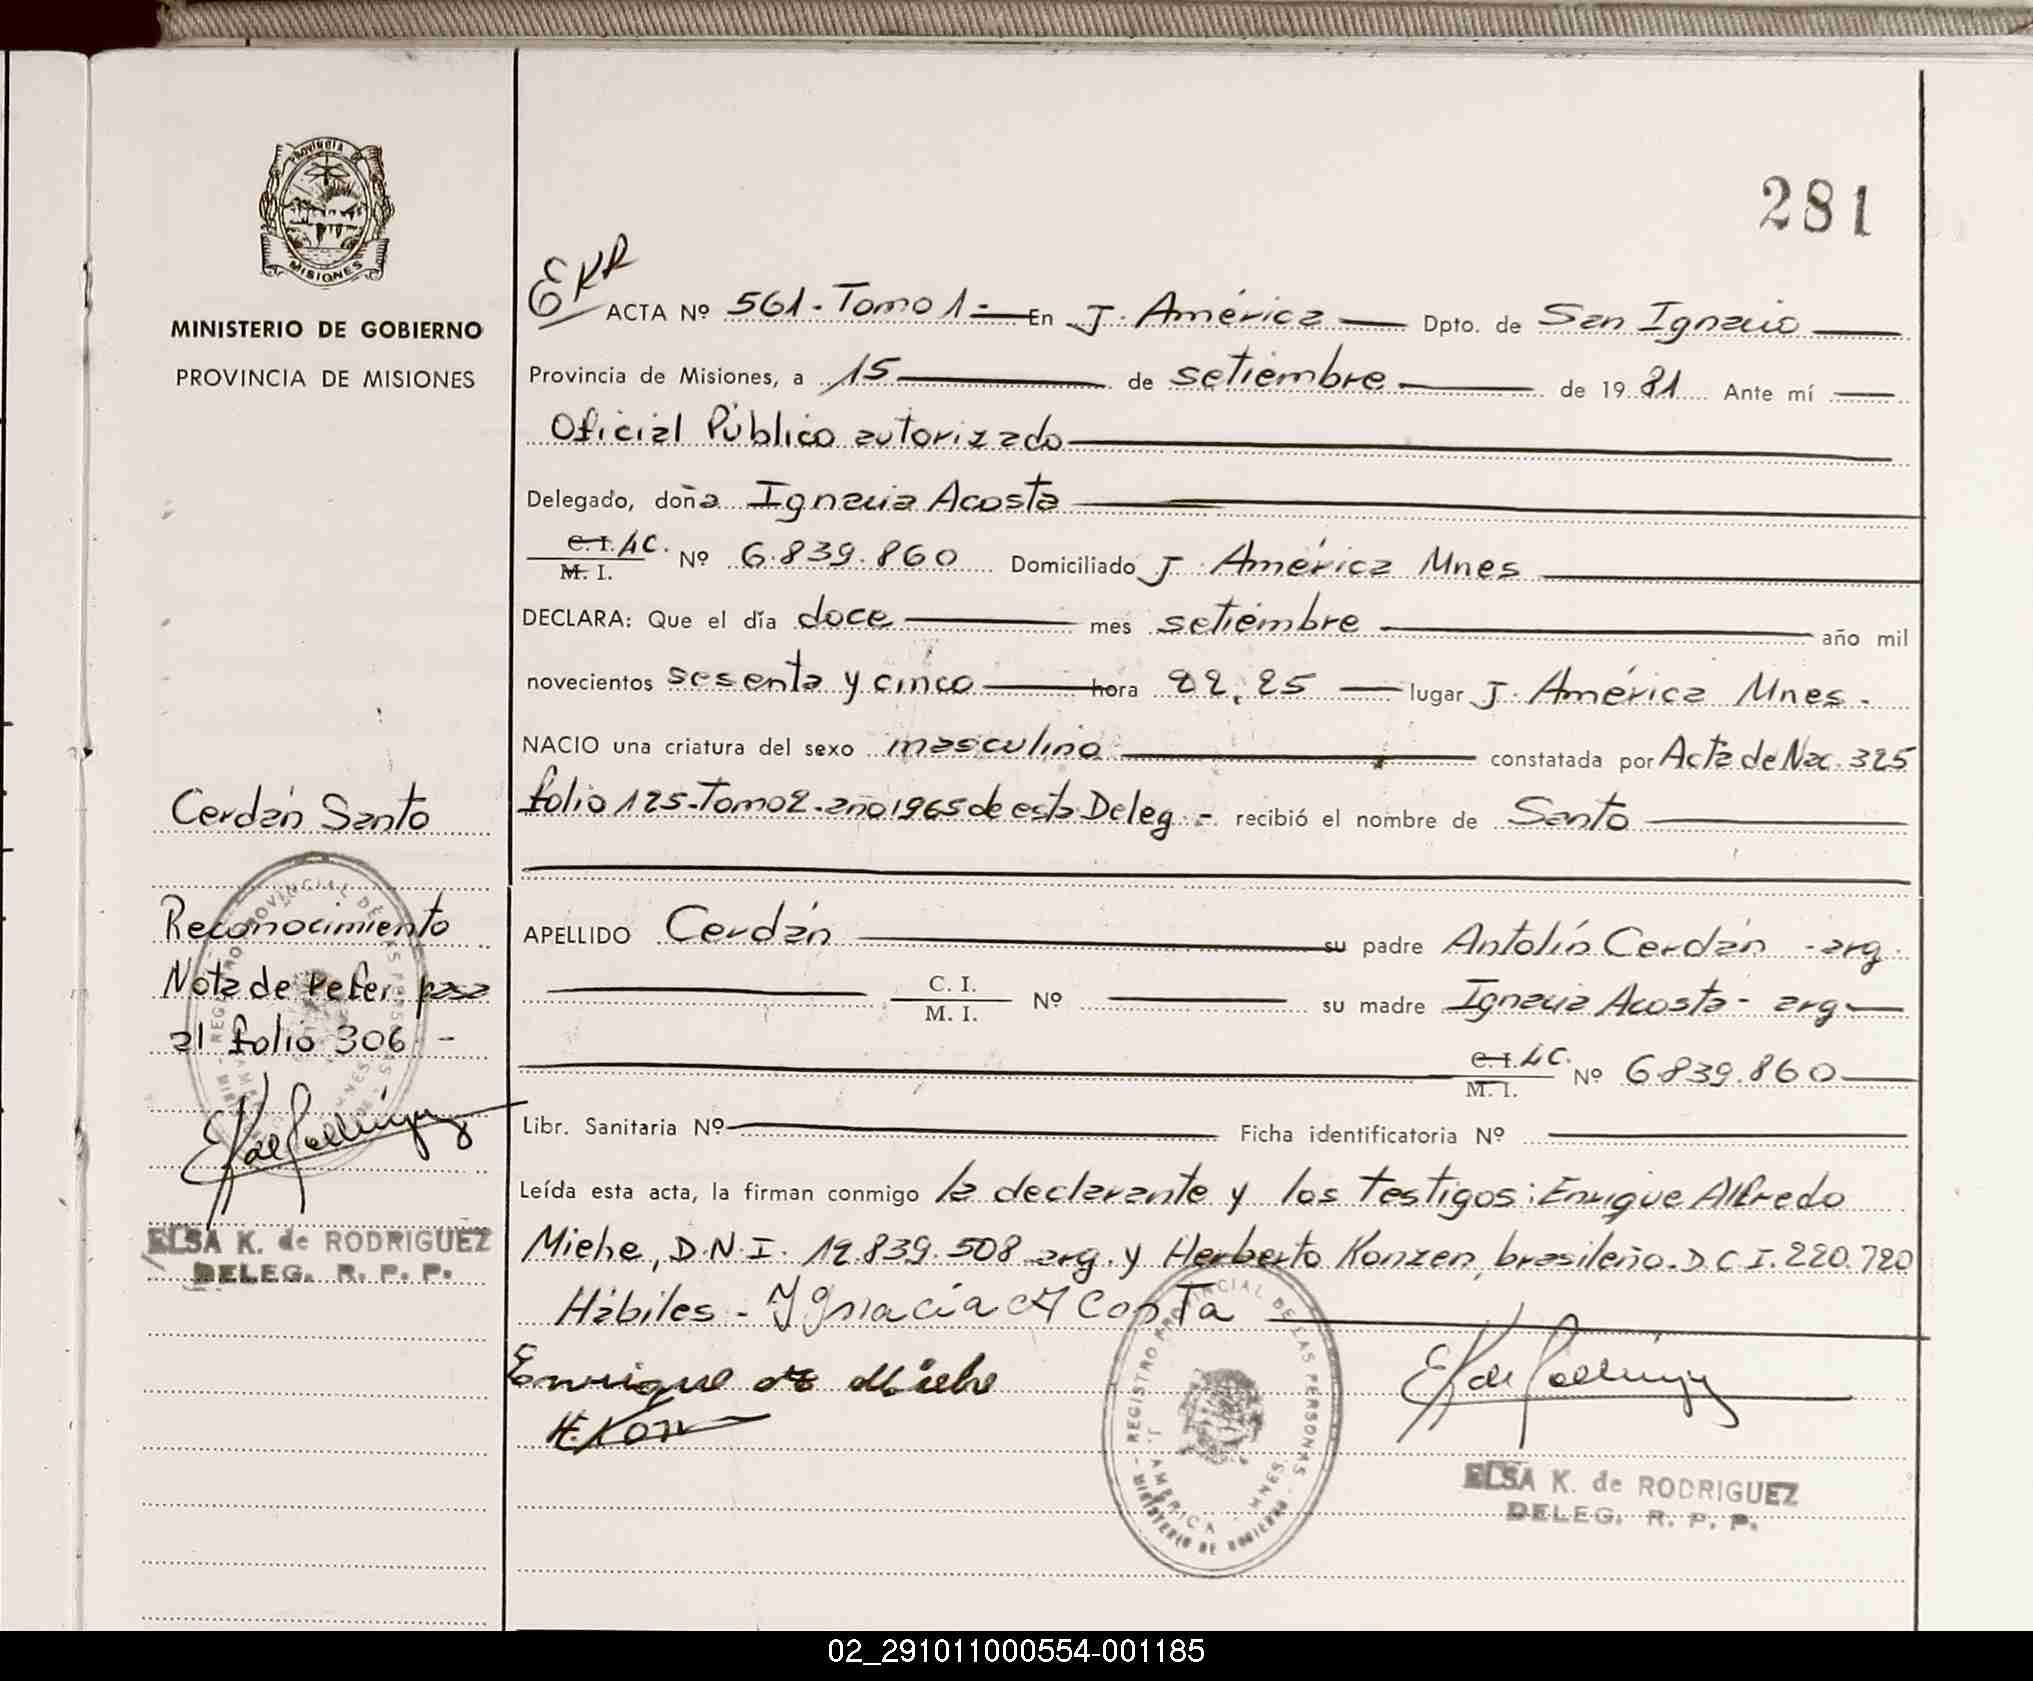 PROVINCIA DE
MISIONES
MINISTERIO DE GOBIERNO
PROVINCIA DE MISIONES
Cerdán Santo
Reconocimiento
Nota de refer. pasa
al folio 306 -
ELSA K. de RODRIGUEZ
DELEG. R. P. P.
281
EKR
ACTA Nº 561 - Tomo 1 - En J. América Dpto. de San Ignacio
Provincia de Misiones, a 15 de setiembre de 1981 Ante mí
Oficial Público autorizado
Delegado, doña Ignacia Acosta
C. I. LC.
M. I. Nº 6.839.860 Domiciliado J. América Mnes
DECLARA: Que el día doce mes setiembre año mil
novecientos sesenta y cinco hora 22,25 lugar J. América Mnes.
NACIO una criatura del sexo masculino constatada por Acta de Nac. 325
folio 125-Tomo 2-año 1965 de esta Deleg.- recibió el nombre de Santo
APELLIDO Cerdán su padre Antolín Cerdán - arg.
C. I.
M. I. Nº su madre Ignacia Acosta - arg
C. I. LC.
M. I. Nº 6.839.860
Libr. Sanitaria Nº Ficha identificatoria Nº
Leída esta acta, la firman conmigo la declarante y los testigos: Enrique Alfredo
Miehe, D.N.I. 12.839.508 arg. y Herberto Konzen, brasileño. D C I. 220.720
Hábiles - Ygnacia Acosta
Enrique A Miehe
H. Kon
REGISTRO PROVINCIAL DE LAS PERSONAS
J. AMERICA - MNES.
MINISTERIO DE GOBIERNO
ELSA K. de RODRIGUEZ
DELEG. R. P. P.
02_291011000554-001185